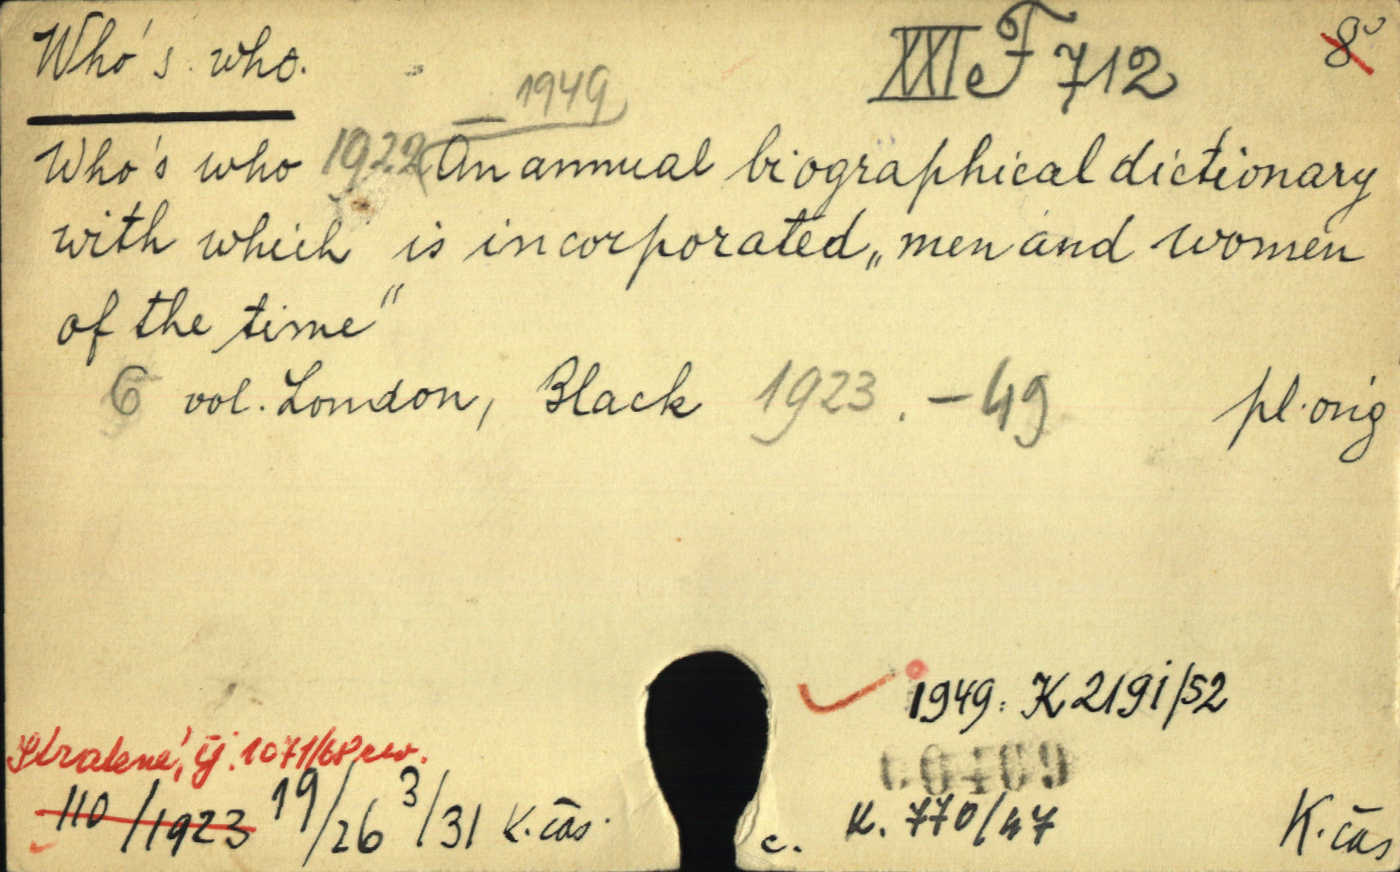 Who's who.
XXI e F 712
8°
— 1949
Who's who 1922 An annual biographical dictionary
with which is incorporated „men and women
of the time“
6 vol. London, Black 1923. – 49 pl. orig
1949: K 219i/52
Ztratené, čj. 1071/68 rev.
110/1923 19/26 3/31 K. čas.
c. K. 770/47
K. čas